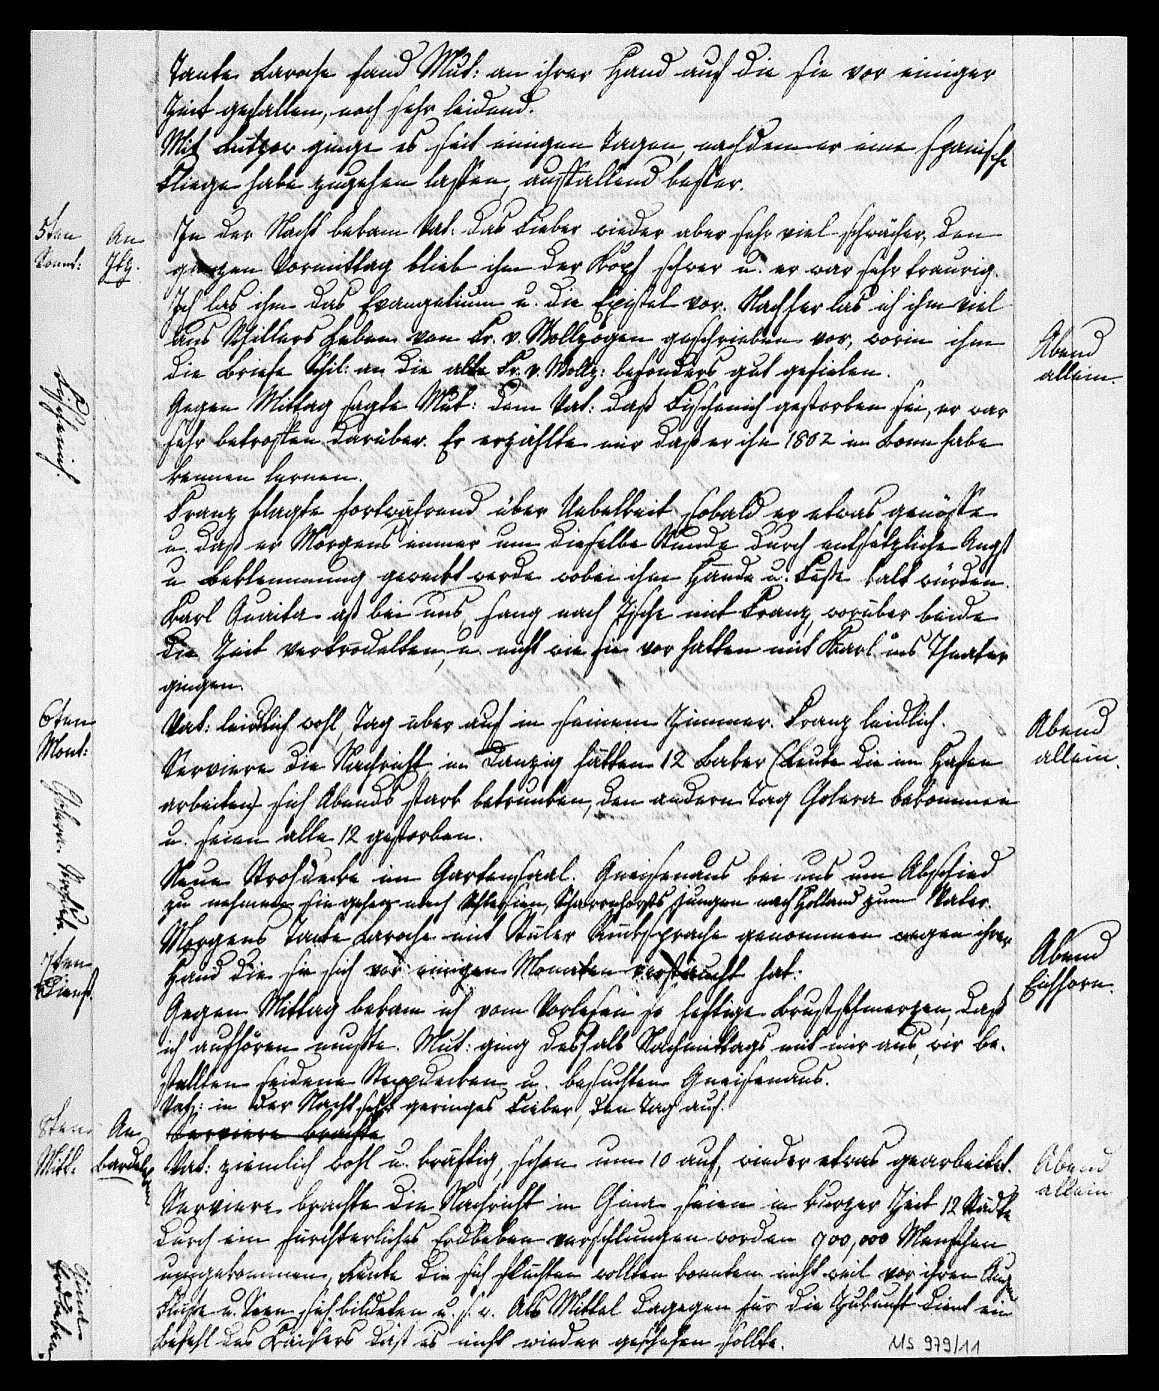 Tante Laroche fand Mut: an ihrer Hand auf die sie vor einiger
Zeit gefallen, noch sehr leidend.
Mit Lutzer ginge es seit einigen Tagen, nachdem er eine spanische
Fliege habe zugehen lassen, auffallend besser.
5ten
Sonnt:
An
In der Nacht bekam Vat: das Fieber wieder aber sehr viel schwächer, den
ganzen Vormittag blieb ihm der Kopf schwer u. er war sehr traurig.
Ich las ihm das Evangelium u. die Epistel vor. Nachher las ich ihm viel
aus Schillers Leben von Fr. v. Wollzogen geschrieben vor, worin ihm
die Briefe Schil: an die alte Fr. v. Wollz: besonders gut gefielen.
Abend
allein.
Gegen Mittag sagte Mut: dem Vat: daß Fischenich gestorben sei, er war
sehr betroffen darüber. Er erzählte mir daß er ihn 1802 in Bonn habe
kennen lernen.
Fischenich.
Franz klagte fortwährend über Uebelkeit sobald er etwas genösse
u. daß er Morgens immer um dieselbe Stunde durch entsetzliche Angst
u Beklemmung geweckt werde wobei ihm Hände u. Füße kalt würden.
Karl Guaita aß bei uns, sang nach Tische mit Franz, worüber beide
die Zeit vertrödelten, u. nicht wie sie vor hatten mit Karl ins Theater
gingen.
6ten
Mont:
Vat: leidlich wohl, Tag über auf in seinem Zimmer. Franz leidlich.
Serviere die Nachricht in Danzig hätten 12 Baber (Leute die im Hafen
arbeiten) sich Abends stark betrunken, den andern Tag Colera bekommen
u. seien alle 12 gestorben.
Abend
allein.
Neue Strohdecke im Gartensaal. Gneisenaus bei uns um Abschied
zu nehmen sie gehen nach Schlesien, Scharnhorsts Jungen nach Holland zum Vater.
7ten
Dienst.
Morgens Tante Laroche mit Stüler Rücksprache genommen wegen ihrer
Hand die sie sich vor einigen Monaten verstaucht hat.
Abend
Eichhorn.
Gegen Mittag bekam ich vom Vorlesen so heftige Brustschmerzen, daß
ich aufhören mußte. Mut: ging deshalb Nachmittags mit mir aus, wir be-
stellten seidene Steppdecken u. besuchten Gneisenaus.
Vat: in der Nacht sehr geringes Fieber, den Tag auf.
Serviere brachte
8ten
Mitt:
An
Vat: ziemlich wohl u. kräftig, schon um 10 auf, wieder etwas gearbeitet.
Abend
allein
Serviere brachte die Nachricht in China seien in kurzer Zeit 12 Städte
durch ein fürchterliches Erdbeben verschlungen worden 900,000 Menschen
umgekommen, Leute die sich flüchten wollten konnten nicht weil vor ihren Augen
Flüsse u. Seen sich bildeten u. s. w. Als Mittel dagegen für die Zukunft dient ein
Befehl des Kaisers daß es nicht wieder geschehen sollte.
China
Erdbeben.
MS 979/11